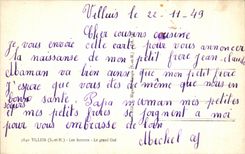 Velluis le 22-11-49
Cher cousins cousine
Je vous envoie cette carte pour vous annoncer
la naissance de mon petit frère jean-claude
Maman va bien ainsi que mon petit frère
j'espère que vous des de même que nous en
bonne santé. Papa maman mes petites
et mes petits frères se joignent a moi
pour vous embrasse de loin
Michel